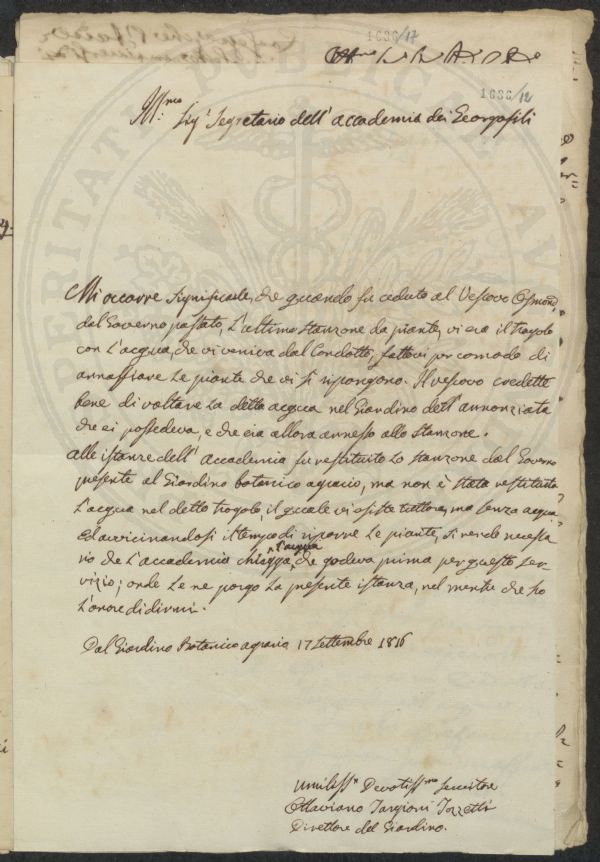 1686/17
1686/12
Ill.mo
Sig.r Segretario dell' accademia dei Georgofili
Mi occorre significarle, che quando fu ceduto al Vescovo Osmond
dal Governo passato, l'ultimo stanzone da piante, vi era il trogolo
con l'acqua, che vi veniva dal Condotto, fattovi per comodo di
annaffiare le piante che vi si ripongono. Il vescovo credette
bene di voltare la detta acqua nel Giardino dell' annonziata
che ei possedeva, e che era allora annesso allo stanzone.
alle istanze dell' Accademia fu restituito lo stanzone dal Governo
presente al Giardino botanico agrario, ma non è stata restituita
l'acqua nel detto trogolo, il quale vi esiste tuttora, ma senza acqua
Ed avvicinandosi il tempo di riporre le piante, si rende necessa
rio che l'accademia chiegga l'acqua, che godeva prima per questo ser-
vizio; onde le ne porgo la presente istanza, nel mentre che ho
l'onore di dirmi.
Dal Giardino Botanico agrario 17 settembre 1816
Umiliss.o Devotiss.mo servitore
Ottaviano Targioni Tozzetti
Direttore del Giardino.